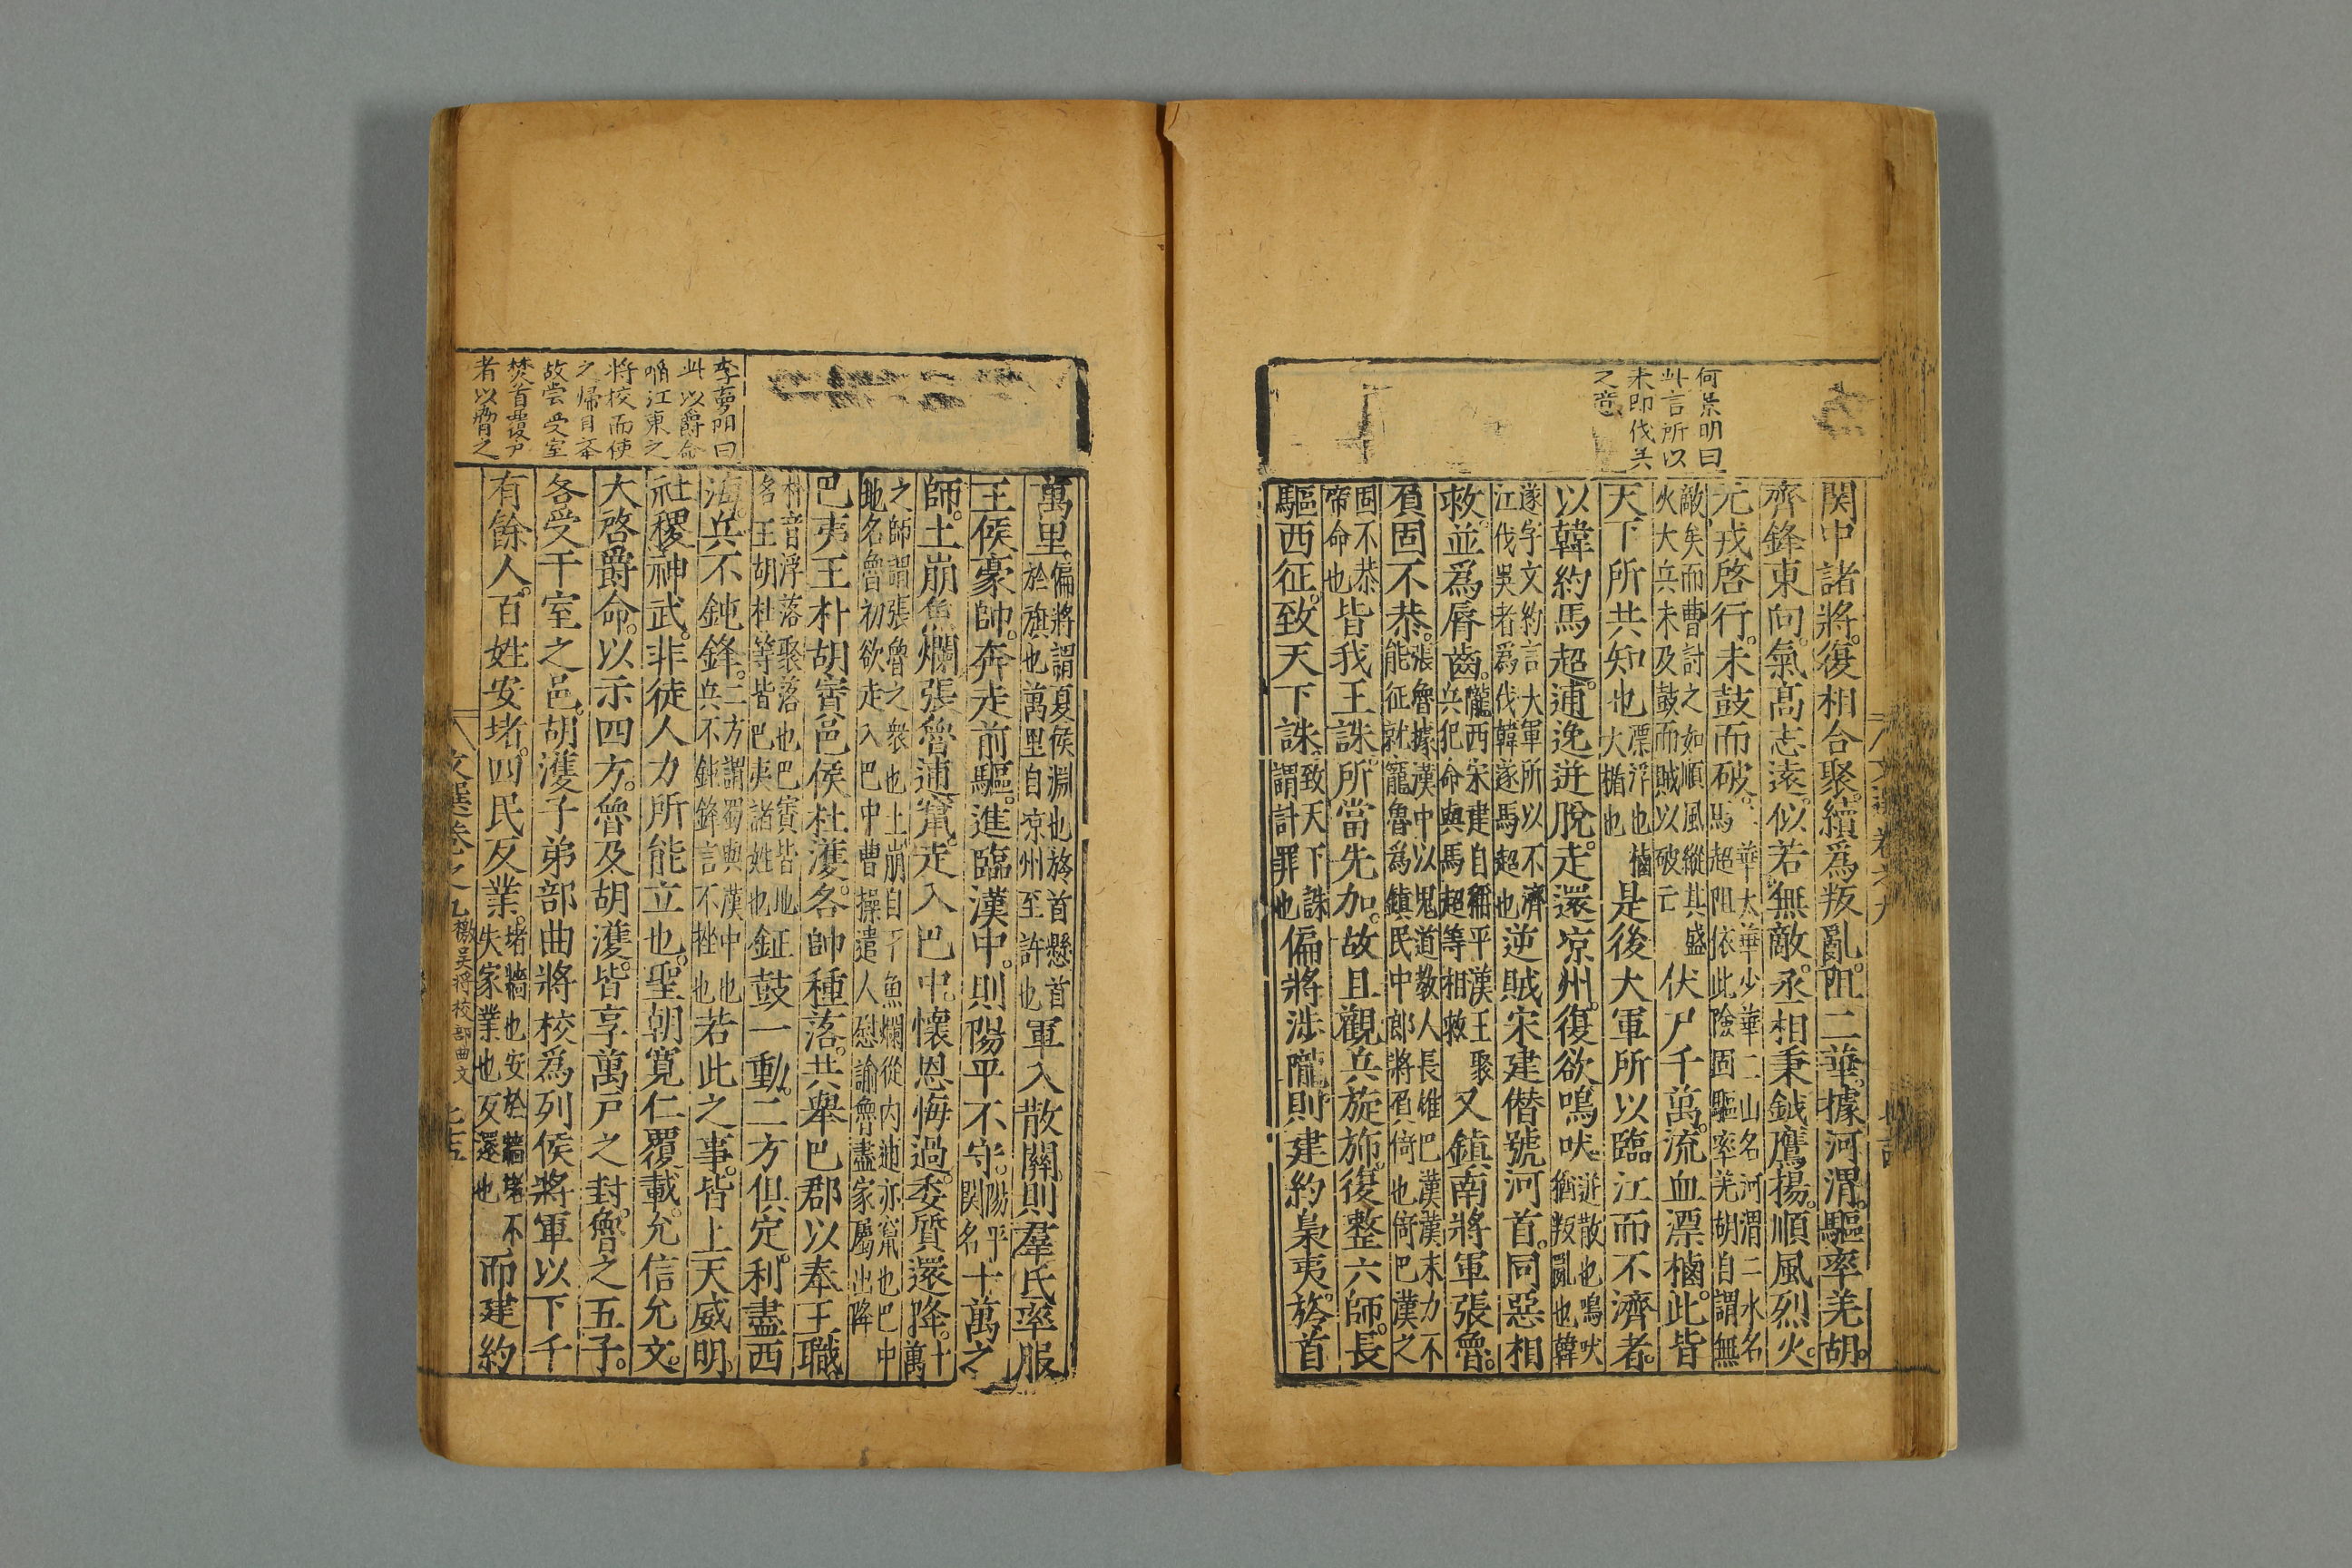 何景明曰
此言所以
未即伐吳
之意
関中諸將。復相合聚。續爲叛亂。阻二華。據河渭。驅率羌胡。
齊鋒東向。氣髙志遠。似若無敵。丞相秉鉞鷹揚。順風烈火。
元戎啓行。未鼓而破。馬超阻依此險固驅率羌胡自謂無
華太華少華二山名河渭二水名
敵矣而曹討之如順風縱其盛
火大兵未及鼓而賊以破亡
伏尸千萬。流血漂樐。此皆
天下所共知也
漂浮也樐
大楯也
是後大軍所以臨江而不濟者。
以韓約馬超。逋逸迸脫。走還凉州。復欲鳴吠。
迸散也鳴吠
猶叛亂也韓
遂字文約言大軍所以不濟
江伐吳者爲伐韓遂馬超也
逆賊宋建僣號河首。同惡相
救。並爲脣齒。
隴西宋建自稱平漢王聚
兵犯命與馬超等相救
又鎮南將軍張魯。
負固不恭。
張魯據漢中以鬼道教人長雄巴漢漢末力不
能征就寵魯爲鎮民中郎將負倚也倚巴漢之
固不恭
帝命也
皆我王誅。所當先加。故且觀兵旋斾。復整六師。長
驅西征。致天下誅。
致天下誅
謂計罪也
偏將涉隴。則建約梟夷。旍首
萬里
偏將謂夏侯淵也旍首懸首
於旗也萬里自凉州至許也
軍入散關。則羣氐率服
王侯豪帥。奔走前驅。進臨漢中。則陽平不守。
陽平
関名
十萬之
師。土崩魚爛。張魯逋竄。走入巴中。懷恩悔過。委質還降。
十萬
之師謂張魯之衆也土崩自下魚爛從内逋亦竄也巴中
地名魯初欲走入巴中曹操遣人慰諭魯盡家屬出降
巴夷王朴胡賨邑侯杜濩。各帥種落。共舉巴郡以奉王職。
朴音浮落聚落也巴賨皆地
名王胡杜等皆巴夷諸姓也
鉦鼓一動。二方俱定。利盡西
海。兵不鈍鋒。
二方謂蜀與漢中也
兵不鈍鋒言不挫也
若此之事。皆上天威明。
社稷神武。非徒人力所能立也。聖朝寛仁覆載。允信允文。
大啓爵命。以示四方。魯及胡濩。皆享萬戸之封。魯之五子。
各受千室之邑。胡濩子弟部曲將校爲列侯將軍以下千
有餘人。百姓安堵。四民反業。
堵牆也安於牆堵不
失家業也反還也
而建約
李夢陽曰
此以爵命
㗖江東之
將校而使
之歸自奉
故嘗受室
焚首覆尸
者以脅之
文選卷之九 檄吳將校部曲文